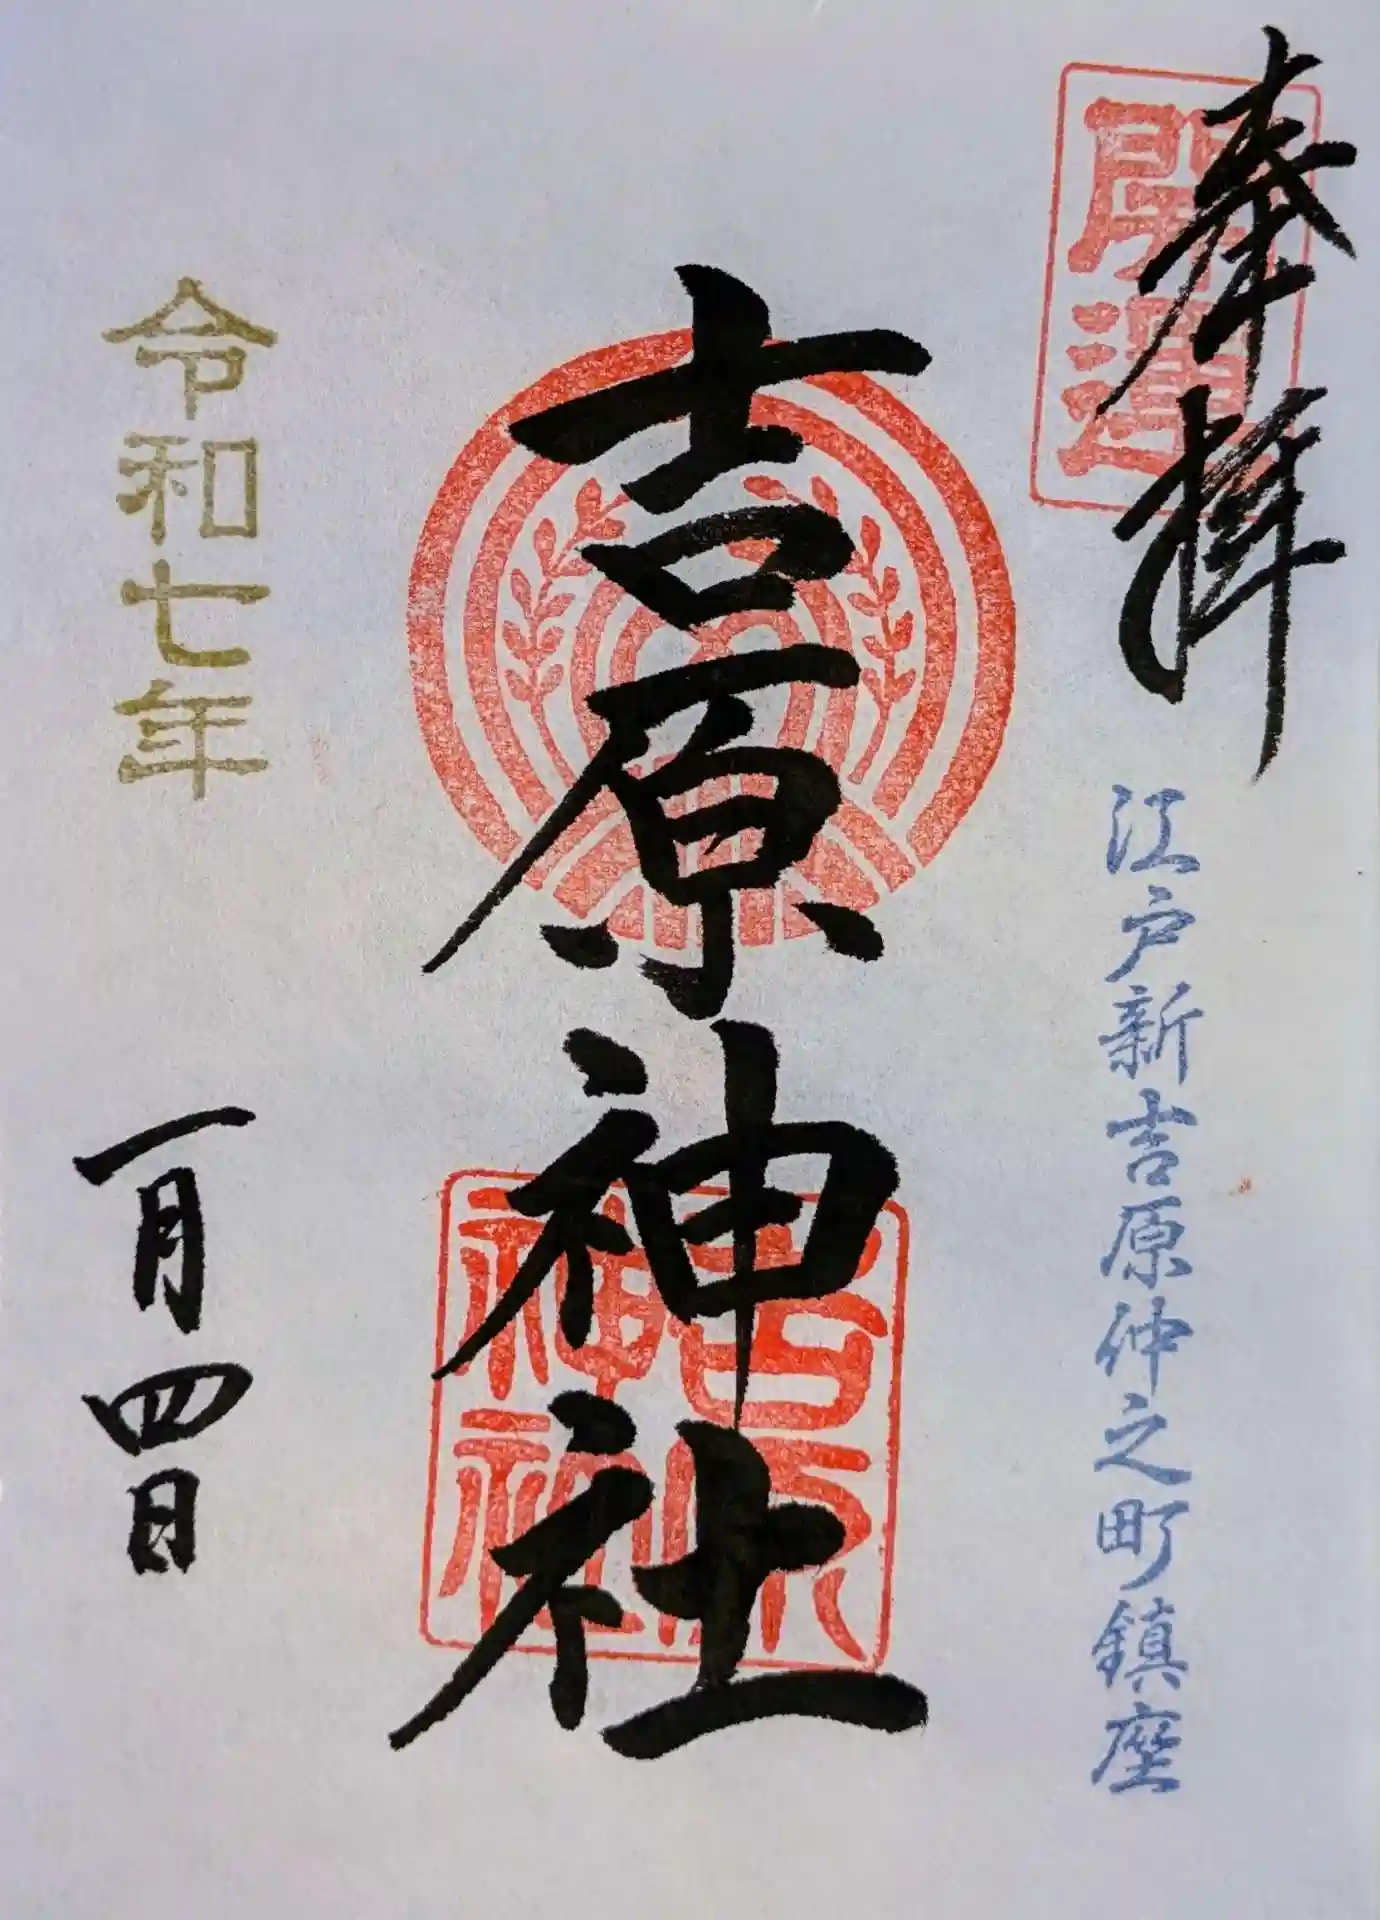 奉拝
開運
江戸新吉原仲之町鎮座
吉原神社
吉原
神社
令和七年
一月四日